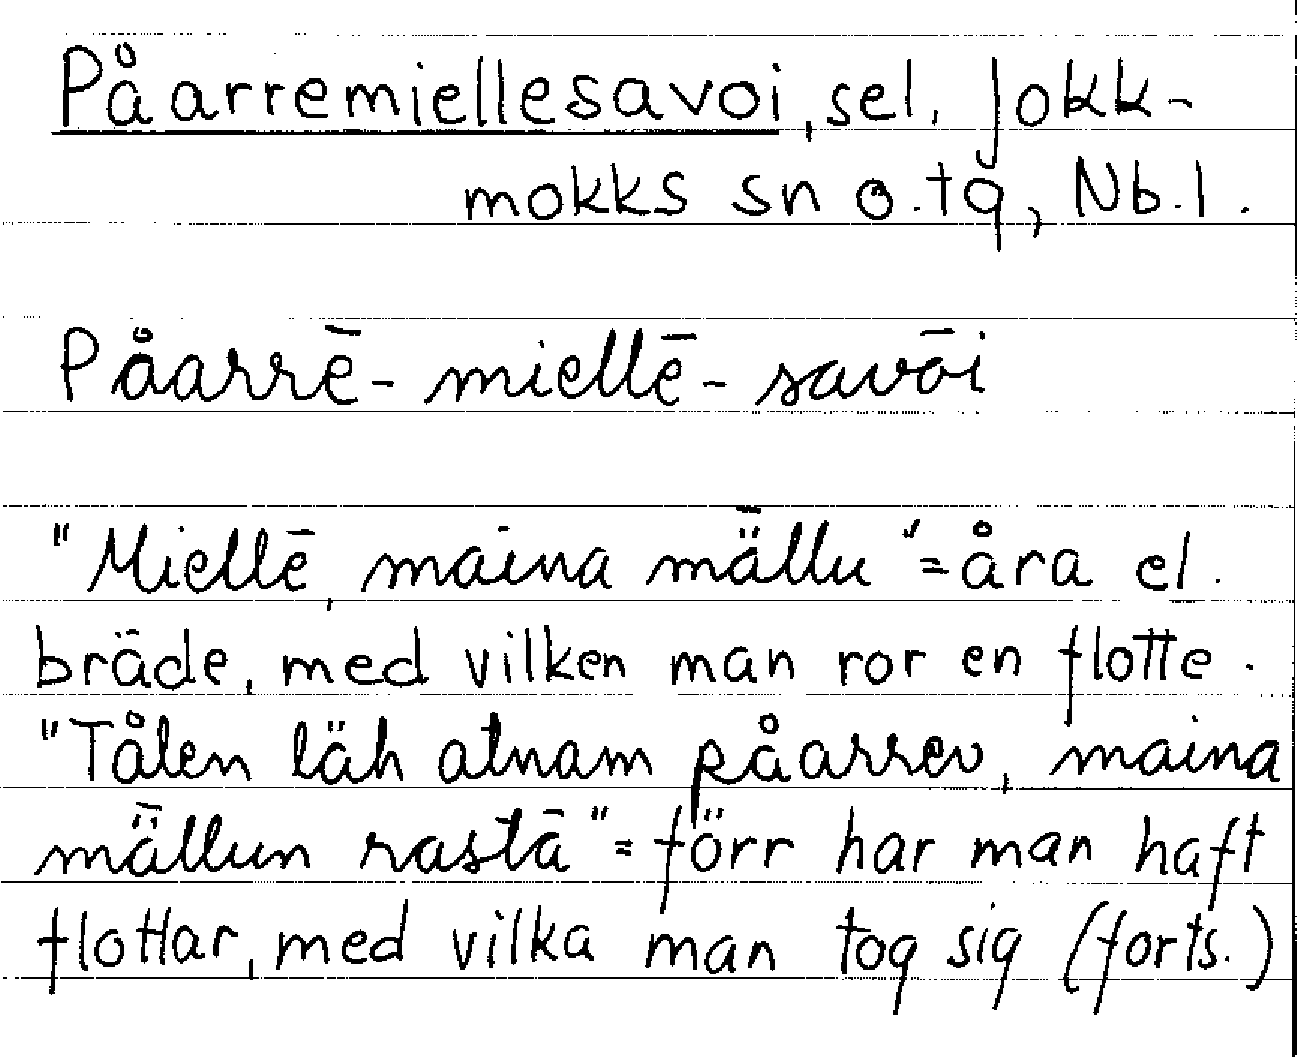 Påarremiellesavoi, sel, Jokk-
mokks sn o. tg, Nb. l.
Påarrē- miellē- savōi
"Miellē, maina mǟllu" = åra el.
bräde, med vilken man ror en flotte.
"Tålen läh atnam påarrev, maina
mǟllun rastā" = förr har man haft
flottar, med vilka man tog sig (forts.)